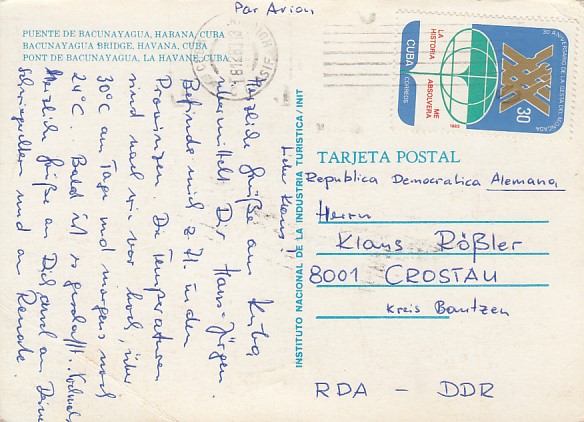 Par Avion
PUENTE DE BACUNAYAGUA, HABANA, CUBA
BACUNAYAGUA BRIDGE, HAVANA, CUBA
PONT DE BACUNAYAGUA, LA HAVANE, CUBA
Lieber Klaus!
Herzliche Grüße aus Kuba,
übermittelt Dir Hans-Jürgen.
Befinde mich z. Zt. in den
Provinzen. Die Temperaturen
sind nach wie vor hoch, über
30°C am Tage und morgens noch
24°C. Bald ist es geschafft. Nochmals
herzliche Grüße an Dich und an Deine
Schwiegereltern und an Renate.
INSTITUTO NACIONAL DE LA INDUSTRIA TURISTICA/INIT
30 ANIVERSARIO DE LA GESTA DEL MONCADA
LA HISTORIA ME ABSOLVERA
CUBA
CORREOS
1983
30
TARJETA POSTAL
Republica Democratica Alemana
Herrn
Klaus Rößler
8001 CROSTAU
Kreis Bautzen
RDA - DDR